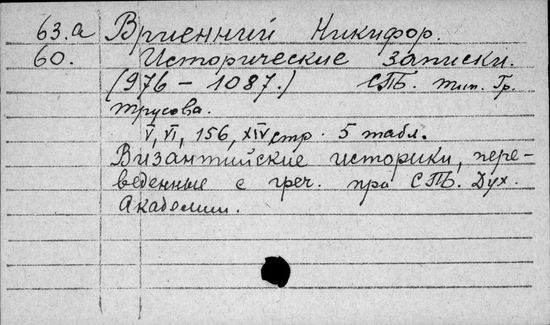 63.а Вриенний Никифор.
60. Исторические записки.
(976 – 1087.) СПб. тип. Гр.
Трусова.
V, VI, 156, XIV стр. 5 табл.
Византийские историки, пере-
веденные с греч. при СПб. Дух.
Академии.